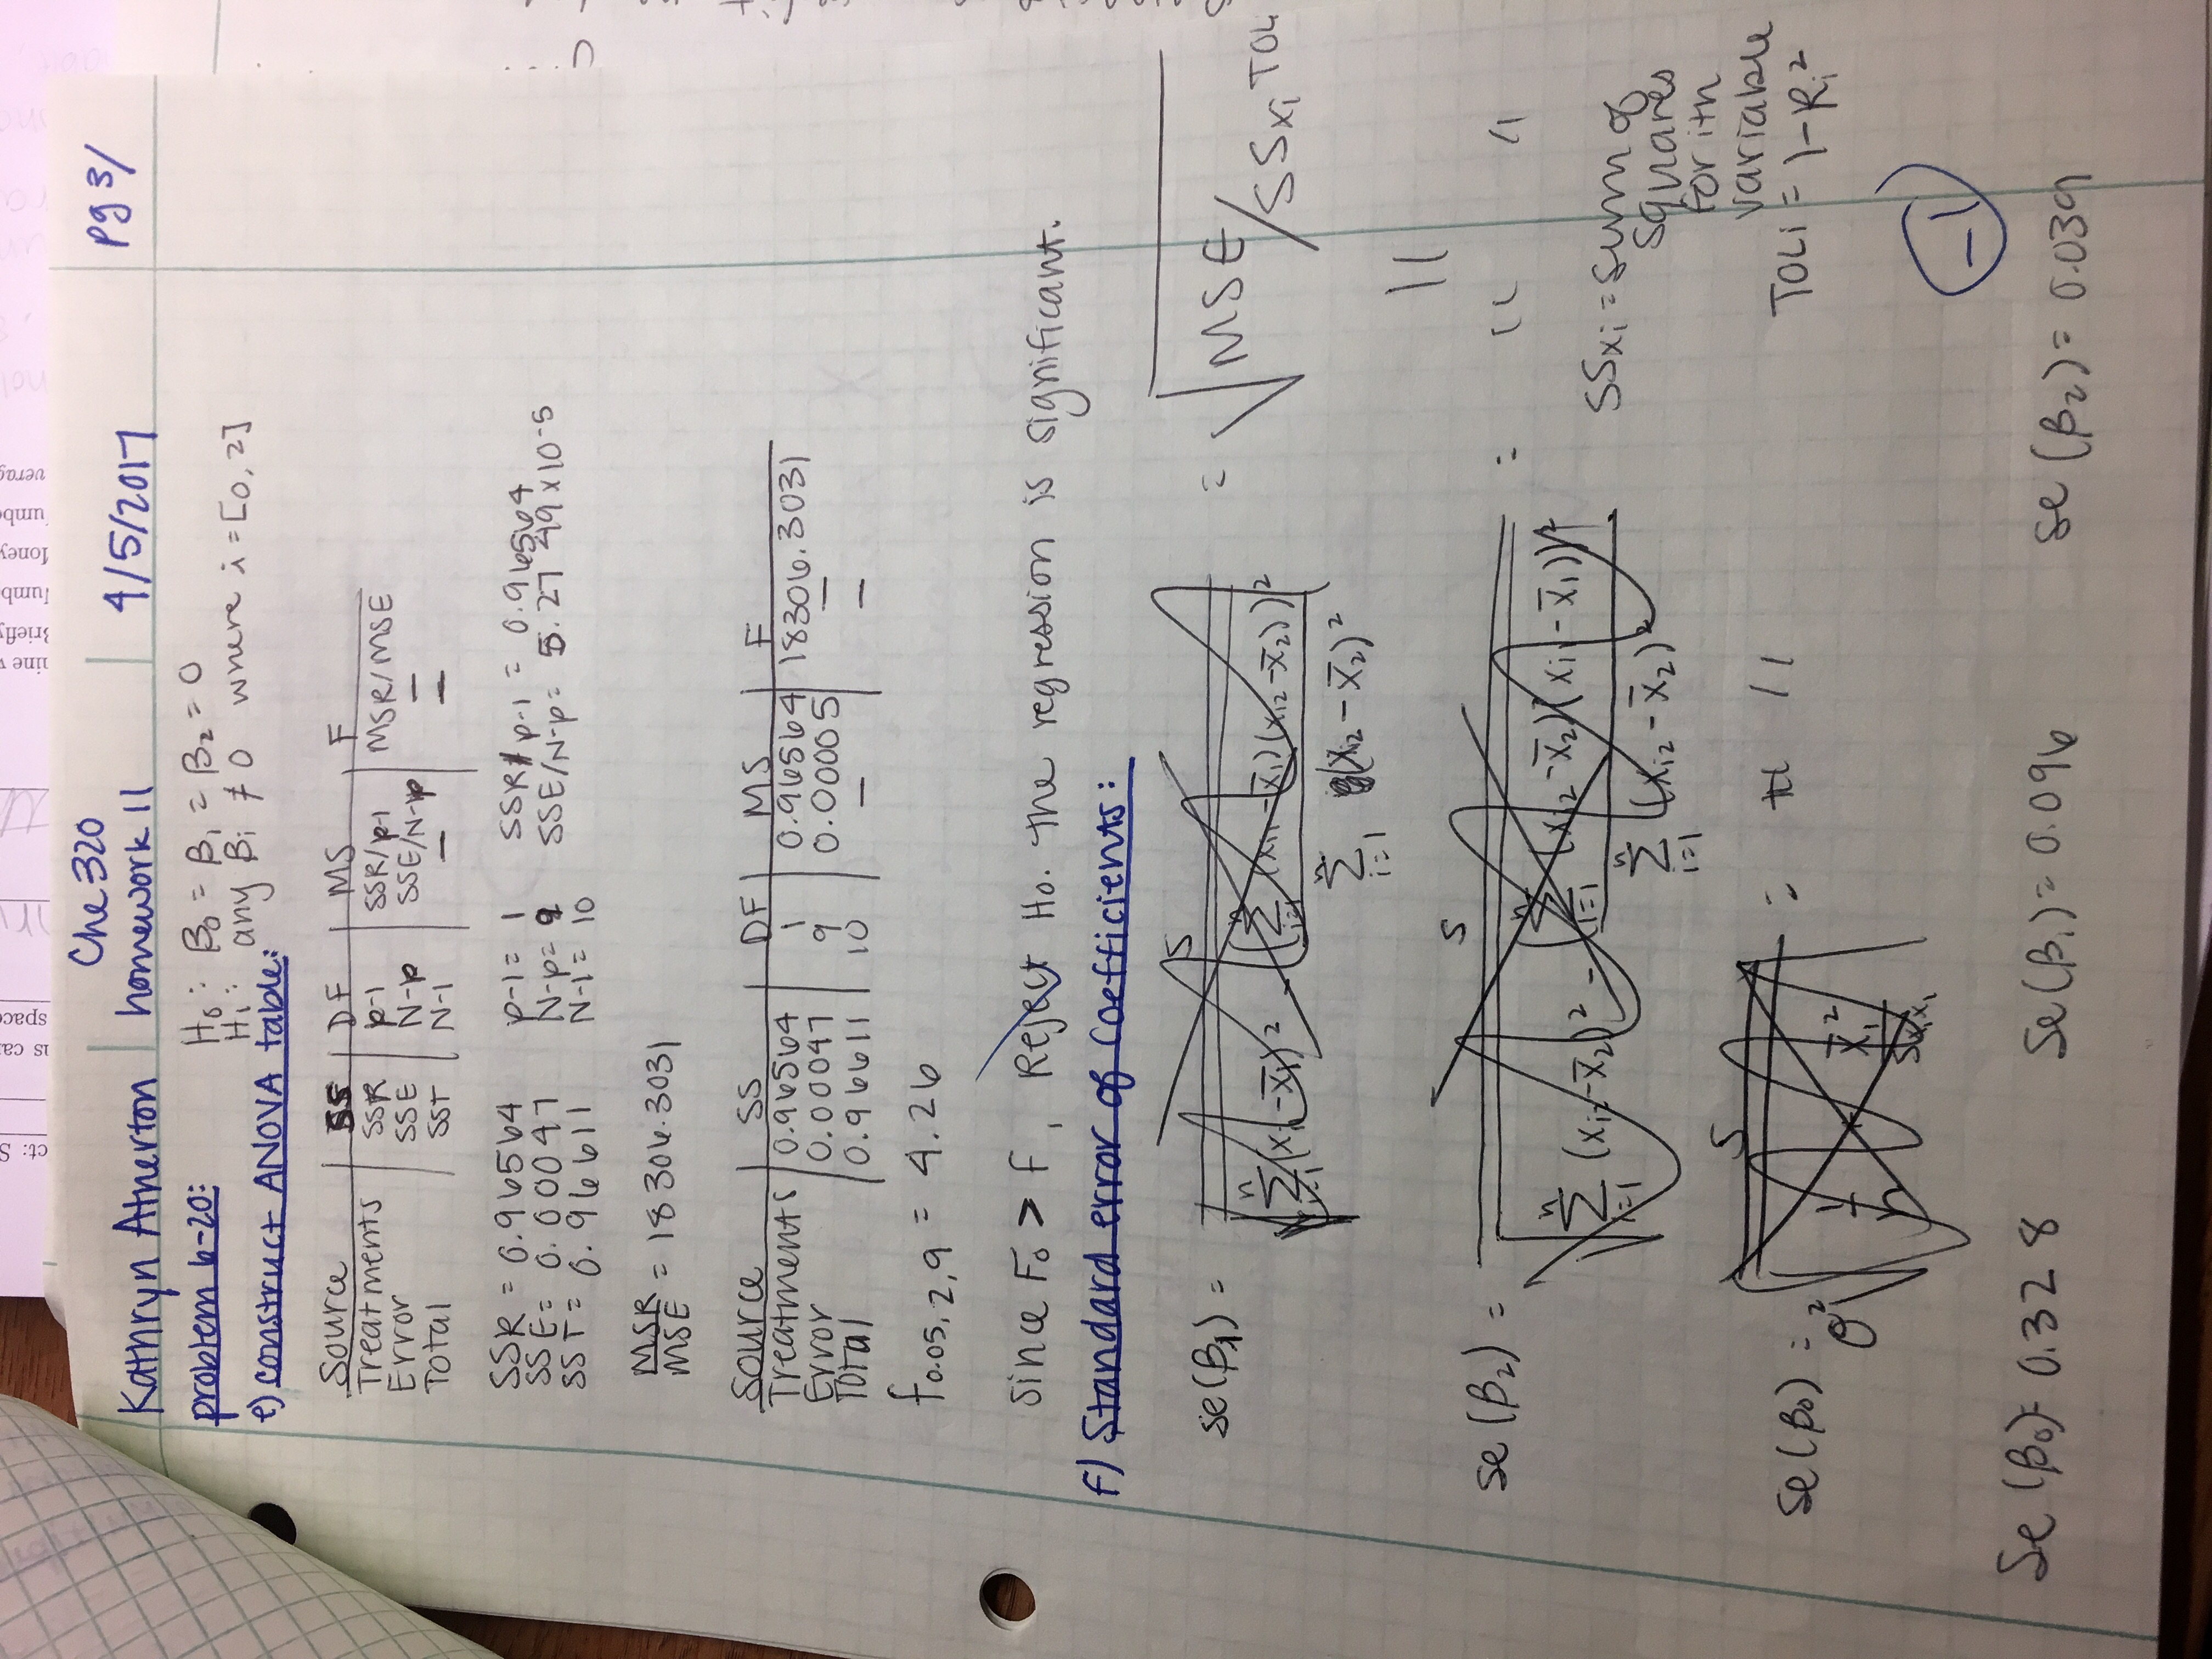 Che 320
Kathryn Atherton | homework 11 | 4/5/2017 pg 3/
problem 6-20: H₀: β₀ = β₁ = β₂ = 0
H₁: any βi ≠ 0 where i = [0, 2]
e) construct ANOVA table:
Source | SS | DF | MS | F
Treatments SSR p-1 SSR/p-1 MSR/MSE
Error SSE N-p SSE/N-p —
Total SST N-1 — —
SSR = 0.96564 p-1 = 1 SSR/p-1 = 0.96564
SSE = 0.00047 N-p = 9 SSE/N-p = 5.2749 x 10⁻⁵
SST = 0.96611 N-1 = 10
MSR/MSE = 18306.3031
Source | SS | DF | MS | F
Treatments 0.96564 1 0.96564 18306.3031
Error 0.00047 9 0.00005 —
Total 0.96611 10 — —
f0.05, 2, 9 = 4.26
since F₀ > f, Reject H₀. The regression is significant.
f) Standard error of coefficients:
se(β₁) = S / √( Σ(i=1 to n) (xi1 - x̄₁)² - (Σ(i=1 to n) (xi1 - x̄₁)(xi2 - x̄₂))² / Σ(i=1 to n) (xi2 - x̄₂)² ) = √(MSE/SSxi TOLi
"
se(β₂) = S / √( Σ(i=1 to n) (xi2 - x̄₂)² - (Σ(i=1 to n) (xi2 - x̄₂)(xi1 - x̄₁))² / Σ(i=1 to n) (xi2 - x̄₂)² ) = " "
SSxi = sum of
squares
for ith
variable
se(β₀) = S σ² 1/n x̄₁² / Sx₁x₁ = " "
TOLi = 1-Ri²
-1
Se(β₀) = 0.328 Se(β₁) = 0.096 se(β₂) = 0.039